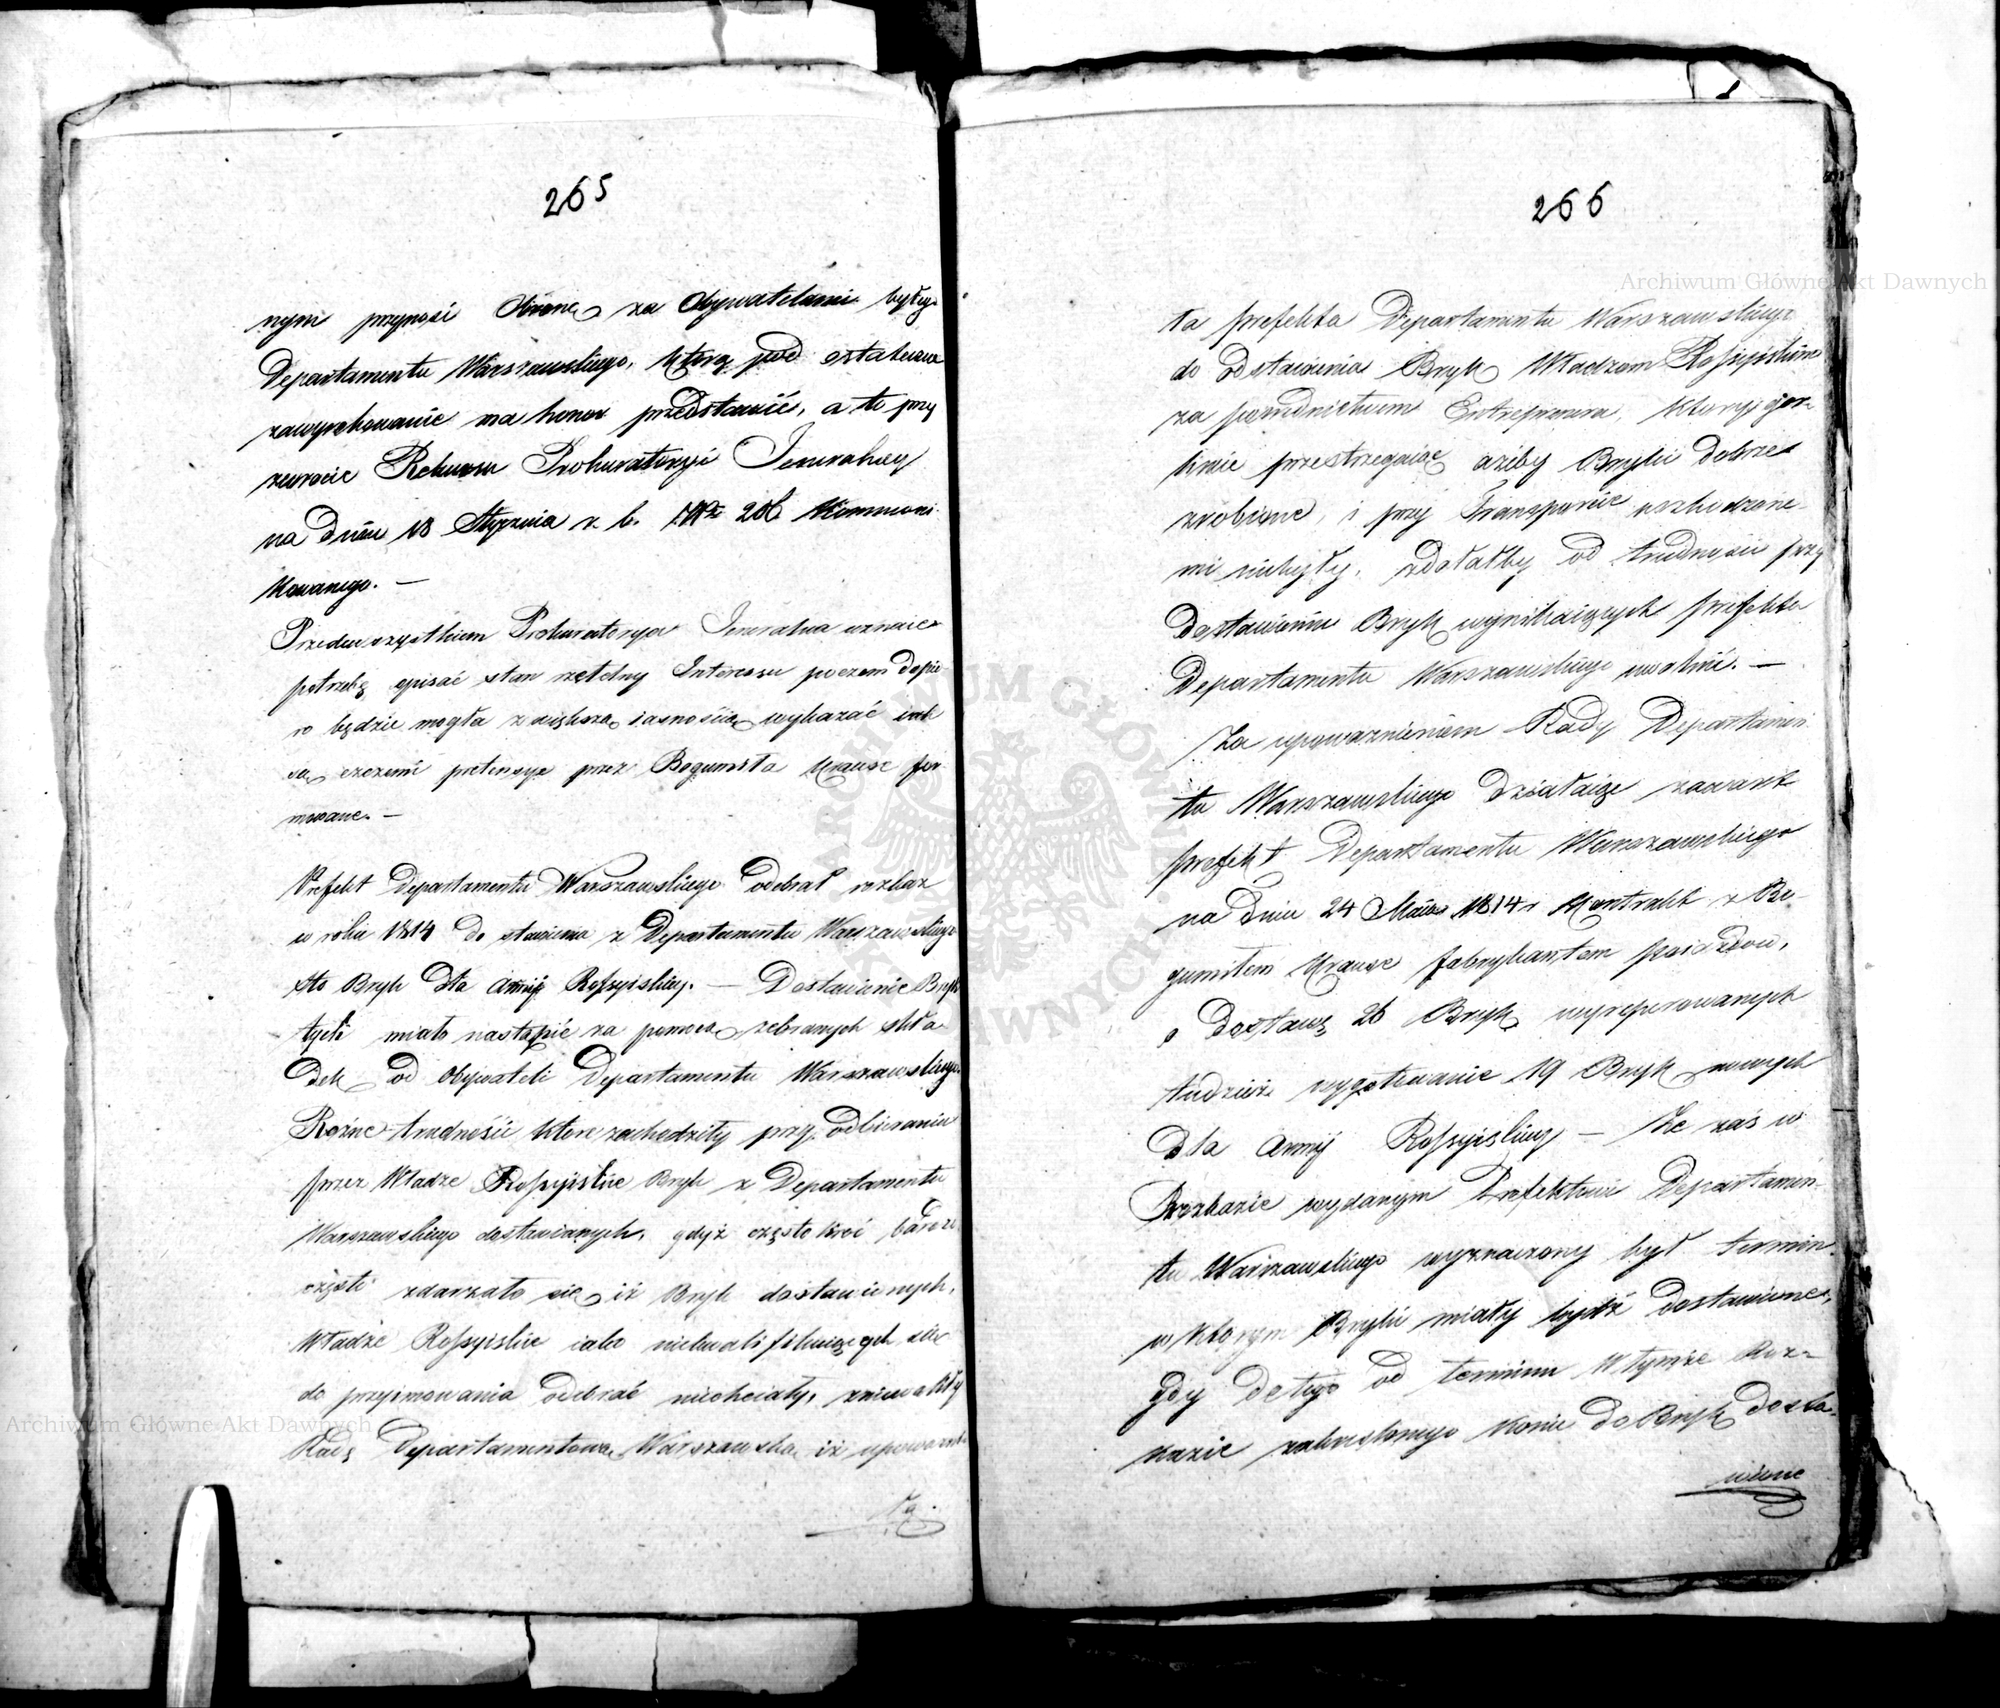 265
nym przynosi obronę za Obywatelami byłego
Departamentu Warszawskiego, którą pod ostateczne
zawyrokowanie ma honor przedstawić, a to przy
zwrocie Rekursu Prokuratoryi Jeneralney
na dniu 18 Stycznia r. b. Nro 286 Kommuni
kowanego. —
Przedewszystkiem Prokuratorya Jeneralna uznaie
potrzebę opisać stan rzetelny Interessu poczem dopie
ro będzie mogła z większą iasnością wykazać iak
są czczemi pretensye przez Bogumiła Krause for
mowane. —
Prefekt Departamentu Warszawskiego odebrał rozkaz
w roku 1814 do stawienia z Departamentu Warszawskiego
sto Bryk dla Armij Rossyiskiey. — Dostawienie Bryk
tych miało nastąpić za pomocą zebranych skła
dek od Obywateli Departamentu Warszawskiego
Rożne trudności ktore zachodziły przy odbieraniu
przez Władze Rossyiskie Bryk z Departamentu
Warszawskiego dostawianych, gdyż często kroć bardzo
często zdarzało się iż Bryk dostawionych,
Władze Rossyiskie iako niekwalifikuiących się
do przyimowania odebrać niechciały, zniewoliły
Radę Departamentową Warszawską iż upoważni
ła
266
ła Prefekta Departamentu Warszawskiego
do odstawienia Bryk Władzom Rossyiskim
za posrednictwem Entreprenera, ktoryi gor-
liwie przestrzegaiąc ażeby Bryki dobrze
zrobione, i przy Transporcie uszkodzone-
mi niebyły, zdołałby od trudności przy
Dostawieniu Bryk wynikaiących Prefekta
Departamentu Warszawskiego uwolnić. —
Za upoważnieniem Rady Departamen
tu Warszawskiego działaiąc zawarł
Prefekt Departamentu Warszawskiego
na dniu 24 Maia 1814 r Kontrakt z Bo-
gumiłem Krause fabrykantem Poiazdow,
o Dostawę 26 Bryk wyreperowanych
tudzież wygotowanie 19 Bryk nowych
dla Armij Rossyiskiey — Ze zaś w
Rozkazie wydanym Prefektowi Departamen-
tu Warszawskiego wyznaczony był termin
w ktorym Bryki miały bydź dostawione,
gdy do tego od terminu w tymże Roz-
kazie zakreslonego konie do Bryk dosta-
wione
Archiwum Główne Akt Dawnych
Archiwum Główne Akt Dawnych
ARCHIWUM GŁÓWNE AKT DAWNYCH